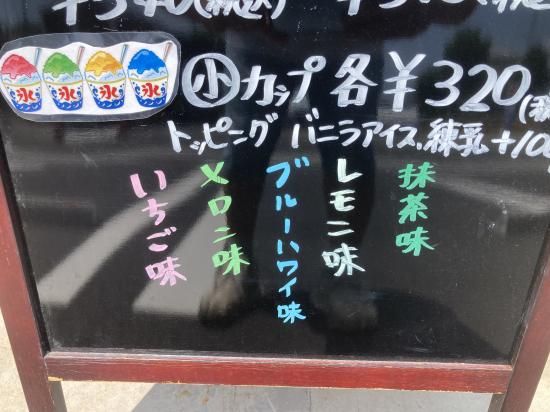 氷 氷 氷 氷
小カップ 各¥320
トッピング バニラアイス、練乳 +10
いちご味
メロン味
ブルーハワイ味
レモン味
抹茶味